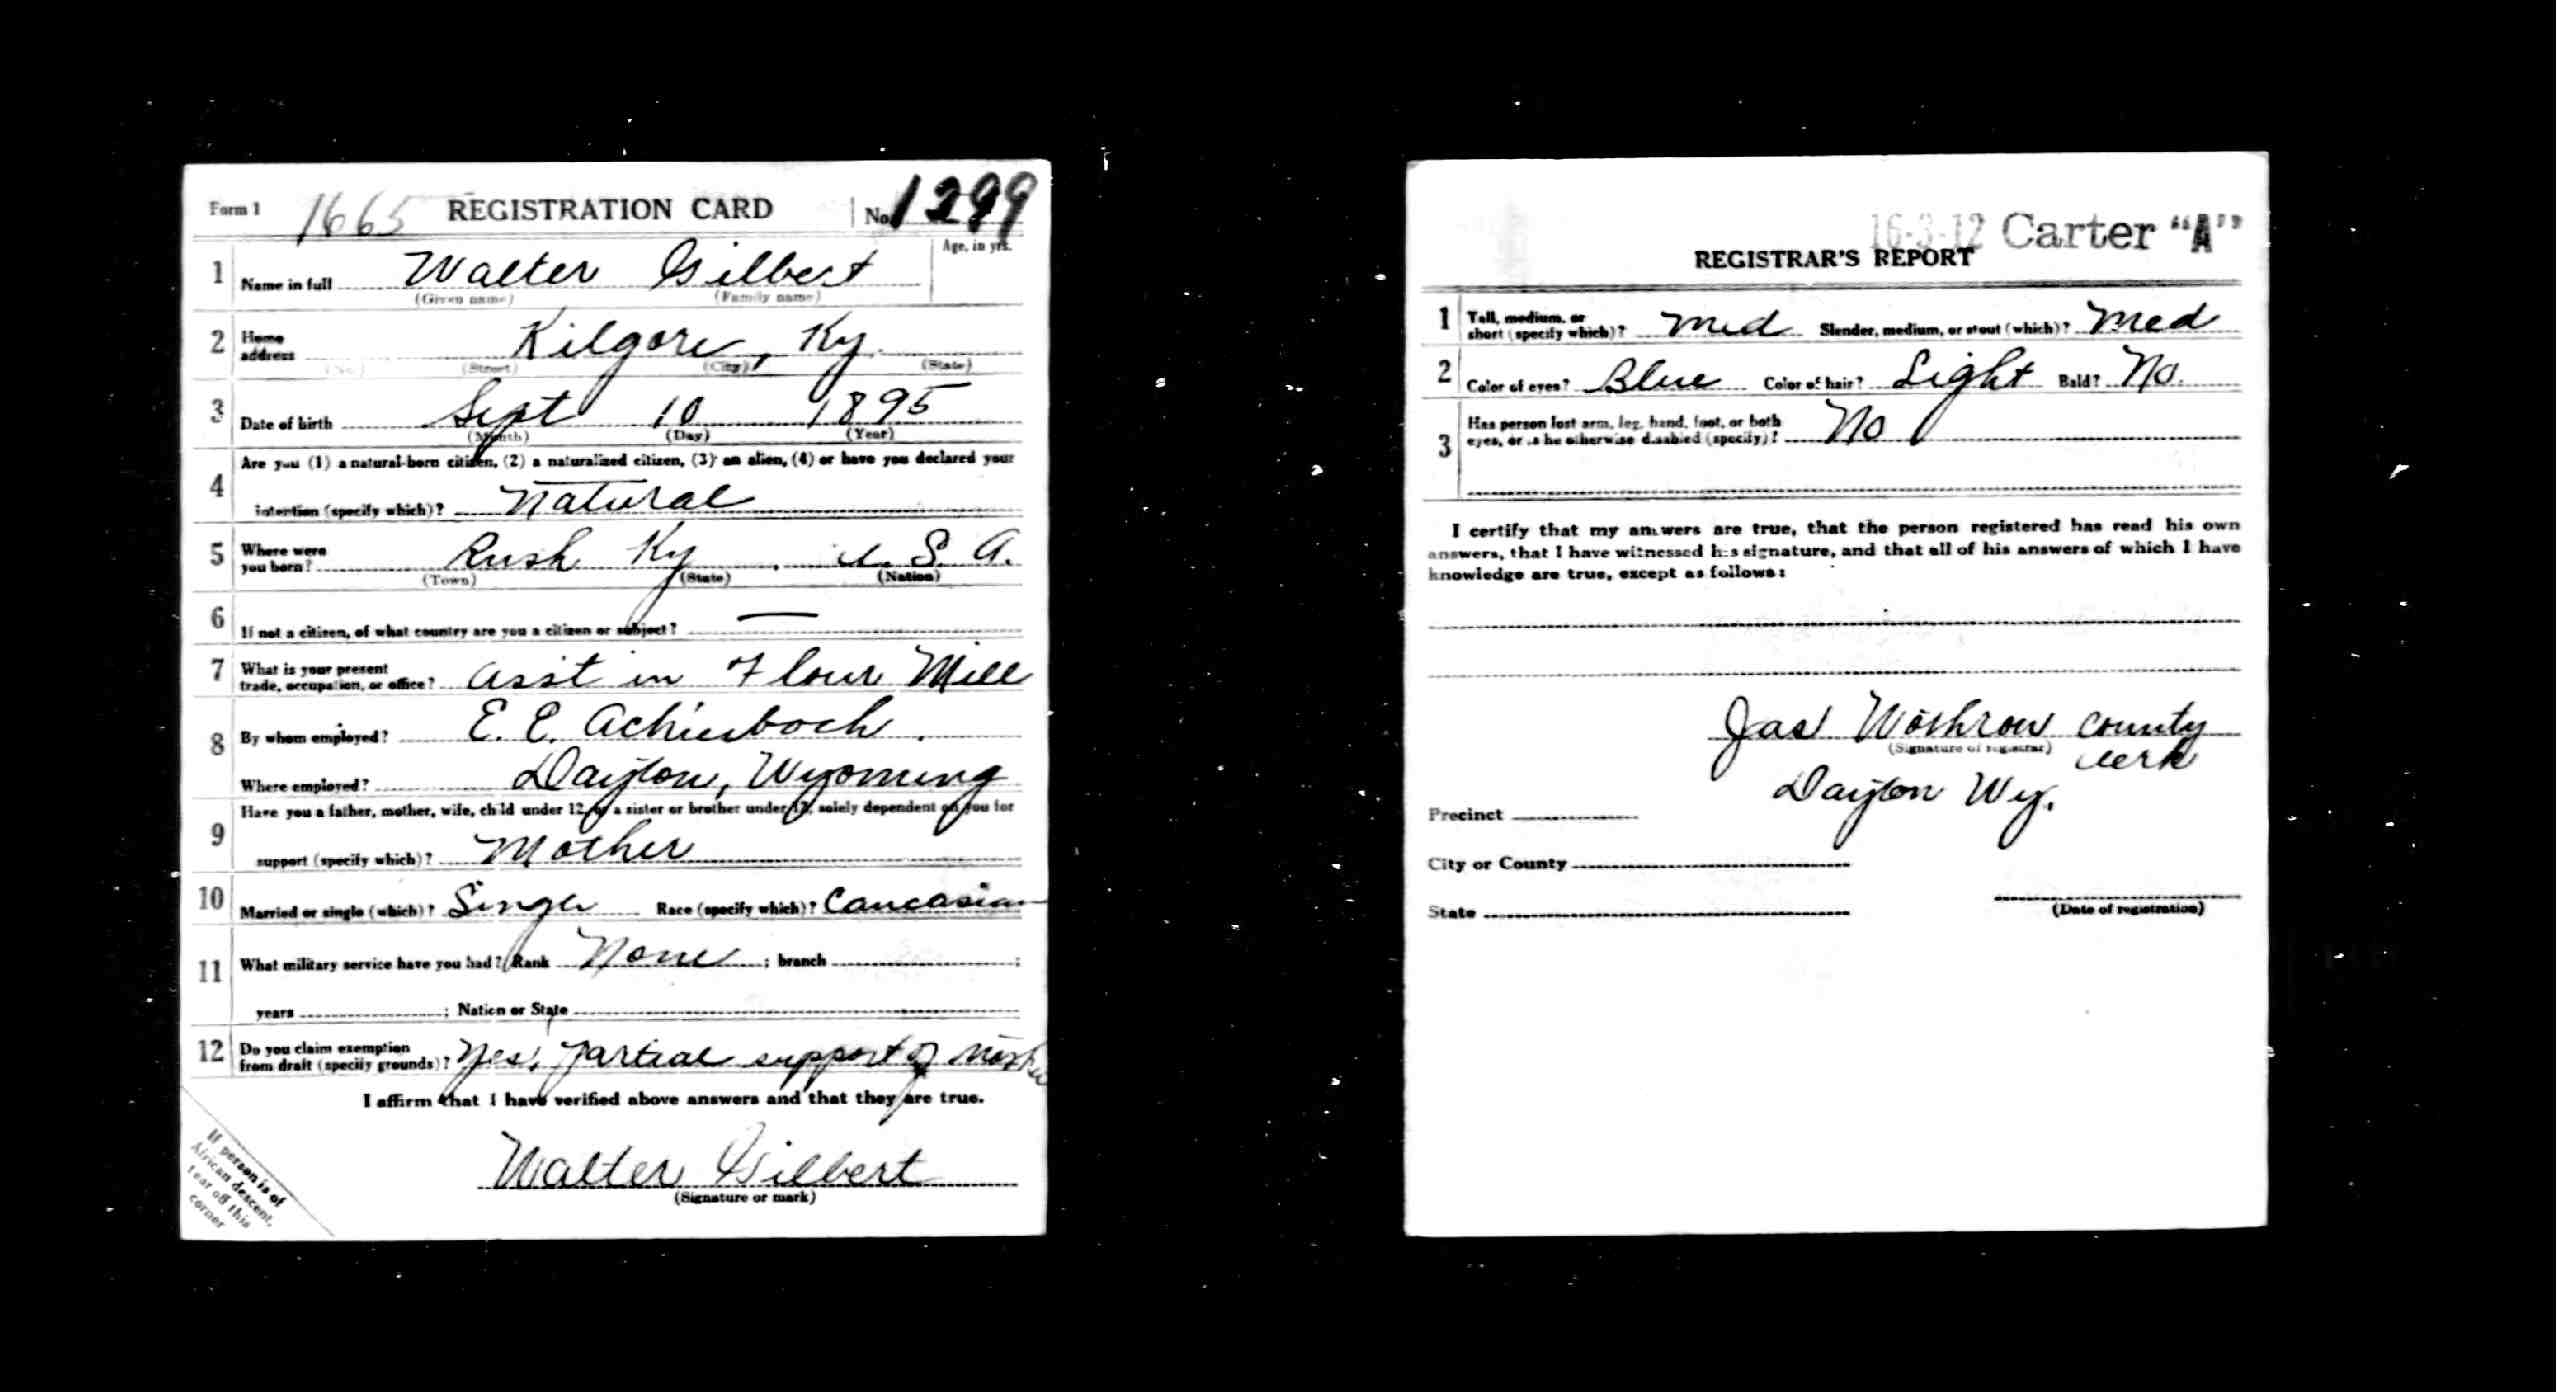 Form 1 1665 REGISTRATION CARD No. 1299
Age, in yrs.
1 Name in full Walter Gilbert
(Given name) (Family name)
2 Home address Kilgore, Ky.
(No.) (Street) (City) (State)
3 Date of birth Sept 10 1895
(Month) (Day) (Year)
4 Are you (1) a natural-born citizen, (2) a naturalized citizen, (3) an alien, (4) or have you declared your
intention (specify which)? Natural
5 Where were you born? Rush Ky, U. S. A.
(Town) (State) (Nation)
6 If not a citizen, of what country are you a citizen or subject? —
7 What is your present trade, occupation, or office? Asst in Flour Mill
8 By whom employed? E. E.
Where employed? Dayton, Wyoming
9 Have you a father, mother, wife, child under 12, or a sister or brother under 12, solely dependent on you for
support (specify which)? Mother
10 Married or single (which)? Single Race (specify which)? Caucasian
11 What military service have you had? Rank None ; branch ;
years ; Nation or State
12 Do you claim exemption from draft (specify grounds)? Yes, partial support of mother
I affirm that I have verified above answers and that they are true.
Walter Gilbert
(Signature or mark)
If person is of
African descent,
tear off this
corner
16-3-12 Carter "A"
REGISTRAR'S REPORT
1 Tall, medium, or short (specify which)? Med Slender, medium, or stout (which)? Med
2 Color of eyes? Blue Color of hair? Light Bald? No.
3 Has person lost arm, leg, hand, foot, or both
eyes, or is he otherwise disabled (specify)? No
I certify that my answers are true, that the person registered has read his own
answers, that I have witnessed his signature, and that all of his answers of which I have
knowledge are true, except as follows:
Jas County
(Signature of registrar) Clerk
Dayton Wy.
Precinct
City or County
State
(Date of registration)